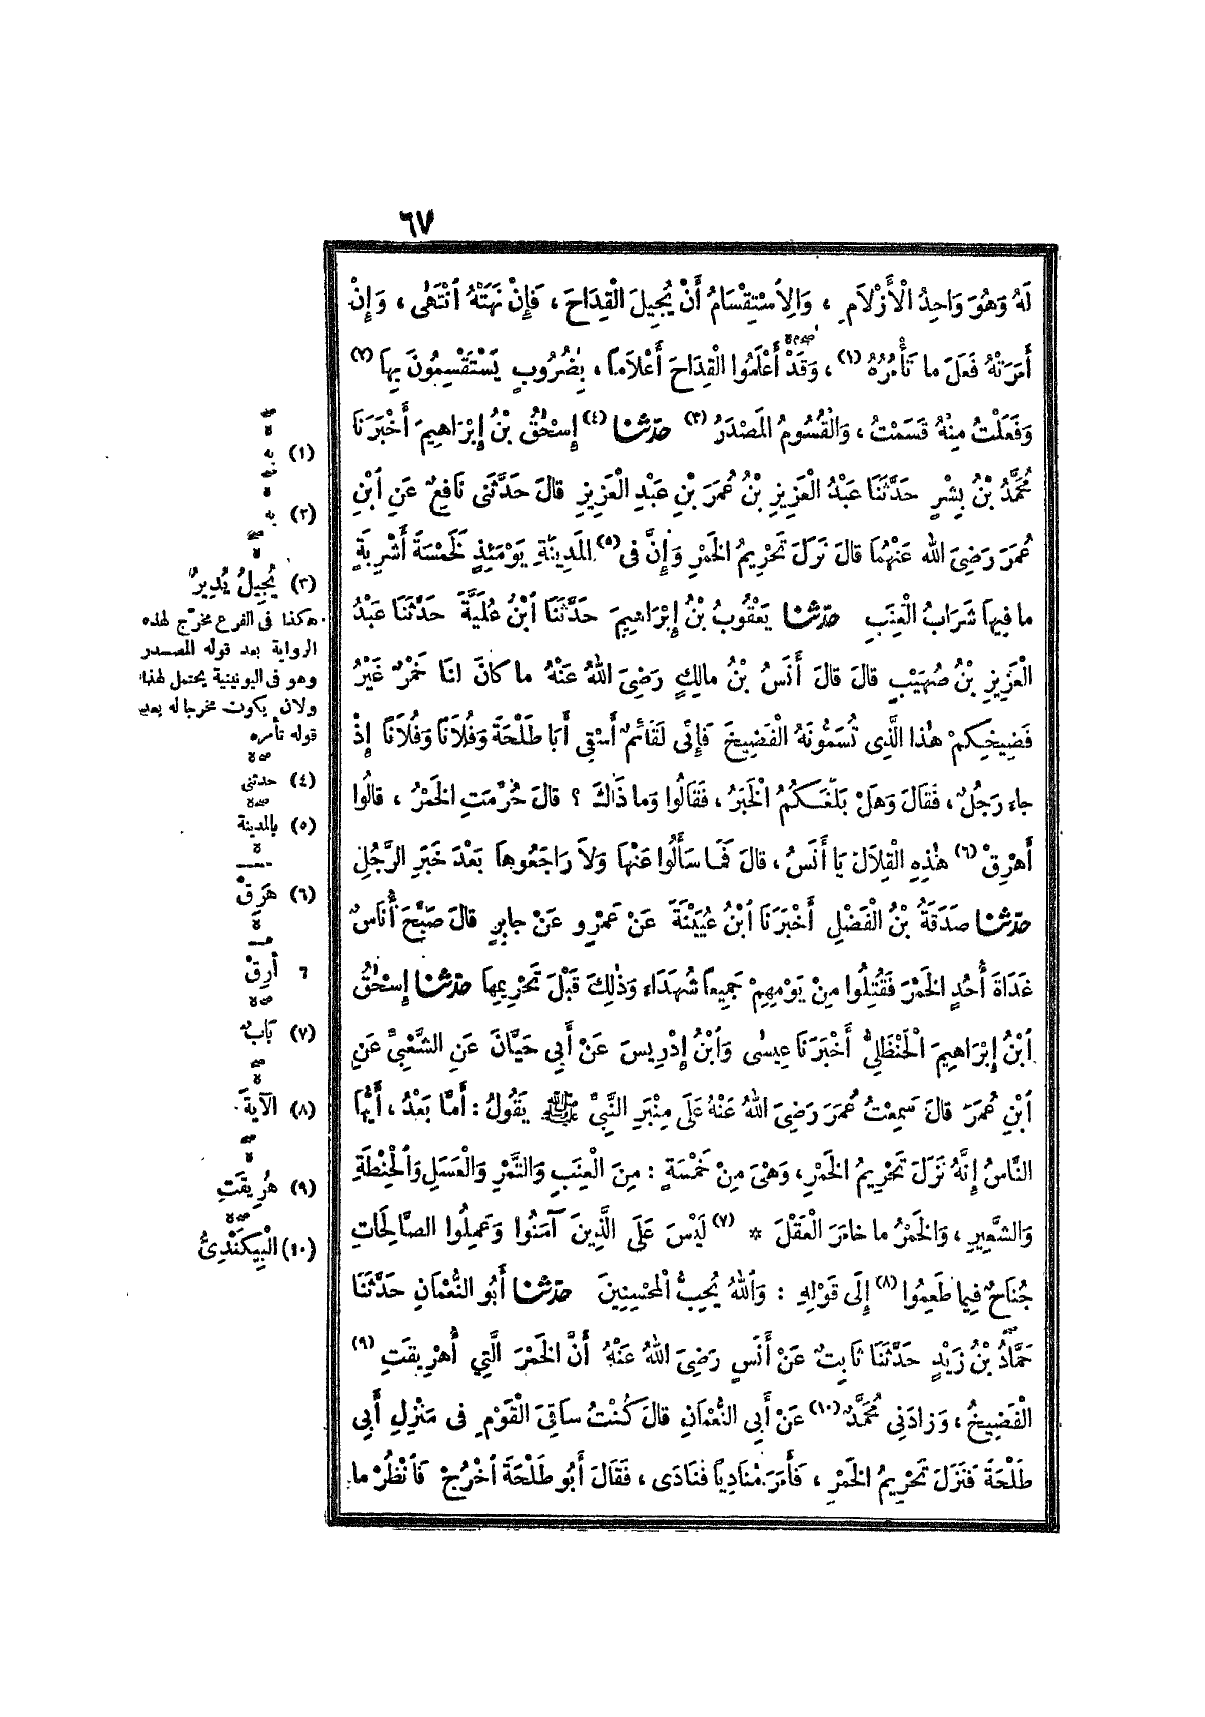 ٦٧
لَهُ وَهُوَ وَاحِدُ الْأَزْلَامِ ، وَالِاسْتِقْسَامُ أَنْ يُجِيلَ الْقِدَاحَ ، فَإِنْ نَهَتْهُ ٱنْتَهٰى ، وَإِنْ
أَمَرَتْهُ فَعَلَ ما تَأْمُرُهُ (١) ، وَقَدْ أَعْلَمُوا الْقِدَاحَ أَعْلَاماً ، بِضُرُوبٍ يَسْتَقْسِمُونَ بِهَا (٢)
وَفَعَلْتُ مِنْهُ قَسَمْتُ ، وَالْقُسُومُ المَصْدَرُ (٣) حدّثنا (٤) إِسْحٰقُ بْنُ إِبْرَاهِيمَ أَخْبَرَنَا
مُحَمَّدُ بْنُ بِشْرٍ حَدَّثَنَا عَبْدُ الْعَزِيزِ بْنُ عُمَرَ بْنِ عَبْدِ الْعَزِيزِ قالَ حَدَّثَنِى نَافِعٌ عَنِ ٱبْنِ
عُمَرَ رَضِىَ اللّٰه عَنْهُمَا قالَ نَزَلَ تَحْرِيمُ الخَمْرِ وَإِنَّ فِى (٥) المَدِينَةِ يَوْمَئِذٍ لَخَمْسَةَ أَشْرِبَةٍ
ما فِيهَا شَرَابُ الْعِنَبِ حدّثنا يَعْقُوبُ بْنُ إِبْرَاهِيمَ حَدَّثَنَا ٱبْنُ عُلَيَّةَ حَدَّثَنَا عَبْدُ
الْعَزِيزِ بْنُ صُهَيْبٍ قالَ قالَ أَنَسُ بْنُ مالِكٍ رَضِىَ اللّٰهُ عَنْهُ ما كانَ لنَا خَمْرٌ غَيْرُ
فَضِيخِكُمْ هٰذَا الَّذِى تُسَمُّونَهُ الْفَضِيخَ فَإِنِّى لَقَائِمٌ أَسْقِى أَبَا طَلْحَةَ وَفُلَاناً وَفُلَاناً إِذْ
جاءَ رَجُلٌ ، فَقَالَ وَهَلْ بَلَغَكُمُ الْخَبَرُ ، فَقَالُوا وَما ذَاكَ ؟ قالَ حُرِّمَتِ الخَمْرُ ، قالُوا
أَهْرِقْ (٦) هٰذِهِ الْقِلَالَ يَا أَنَسُ ، قالَ فَمَا سَأَلُوا عَنْهَا وَلَا رَاجَعُوهَا بَعْدَ خَبَرِ الرَّجُلِ
حدّثنا صَدَقَةُ بْنُ الْفَضْلِ أَخْبَرَنَا ٱبْنُ عُيَيْنَةَ عَنْ عَمْرٍو عَنْ جابِرٍ قالَ صَبَّحَ أُنَاسٌ
غَدَاةَ أُحُدٍ الخَمْرَ فَقُتِلُوا مِنْ يَوْمِهِمْ جَمِيعاً شُهَدَاءَ وَذٰلِكَ قَبْلَ تَحْرِيمِهَا حدّثنا إِسْحٰقُ
ٱبْنُ إِبْرَاهِيمَ الْحَنْظَلِىُّ أَخْبَرَنَا عِيسٰى وَٱبْنُ إِدْرِيسَ عَنْ أَبِى حَيَّانَ عَنِ الشَّعْبِىِّ عَنِ
ٱبْنِ عُمَرَ قالَ سَمِعْتُ عُمَرَ رَضِىَ اللّٰهُ عَنْهُ عَلَى مِنْبَرِ النَّبِىِّ ﷺ يَقُولُ : أَمَّا بَعْدُ ، أَيُّهَا
النَّاسُ إِنَّهُ نَزَلَ تَحْرِيمُ الخَمْرِ، وَهْىَ مِنْ خَمْسَةٍ : مِنَ الْعِنَبِ وَالتَّمْرِ وَالْعَسَلِ وَٱلْحِنْطَةِ
وَالشَّعِيرِ ، وَالخَمْرُ ما خامَرَ الْعَقْلَ * (٧) لَيْسَ عَلَى الَّذِينَ آمَنُوا وَعَمِلُوا الصَّالِحَاتِ
جُنَاحٌ فِيمَا طَعِمُوا (٨) إِلَى قَوْلِهِ : وَٱللّٰهُ يُحِبُّ الْمُحْسِنِينَ حدّثنا أَبُو النُّعْمَانِ حَدَّثَنَا
حَمَّادُ بْنُ زَيْدٍ حَدَّثَنَا ثَابِتٌ عَنْ أَنَسٍ رَضِىَ اللّٰهُ عَنْهُ أَنَّ الخَمْرَ الَّتِي أُهْرِيقَتِ (٩)
الْفَضِيخُ ، وَزَادَنِى مُحَمَّدٌ (١٠) عَنْ أَبِى النُّعْمَانِ قالَ كُنْتُ ساقِىَ الْقَوْمِ فِى مَنْزِلِ أَبِى
طَلْحَةَ فَنَزَلَ تَحْرِيمُ الخَمْرِ ، فَأَمَرَ مُنَادِياً فَنَادَى ، فَقَالَ أَبُو طَلْحَةَ ٱخْرُجْ فَٱنْظُرْ ما
(١) به
(٢) به
(٣) يُجِيلُ يُدِيرُ
هكذا فى الفرع مخرّج لهذه
الرواية بعد قوله المصدر
وهو فى اليونينية يحتمل لهذا
ولان يكون مخرجا له بعد
قوله تأمره
(٤) حدثنى
(٥) بالمدينة
(٦) هَرِقْ
٦ أَرِقْ
(٧) بَابٌ
(٨) الآيةَ
(٩) هُرِيقَتِ
(١٠) الْبِيكَنْدِىُّ